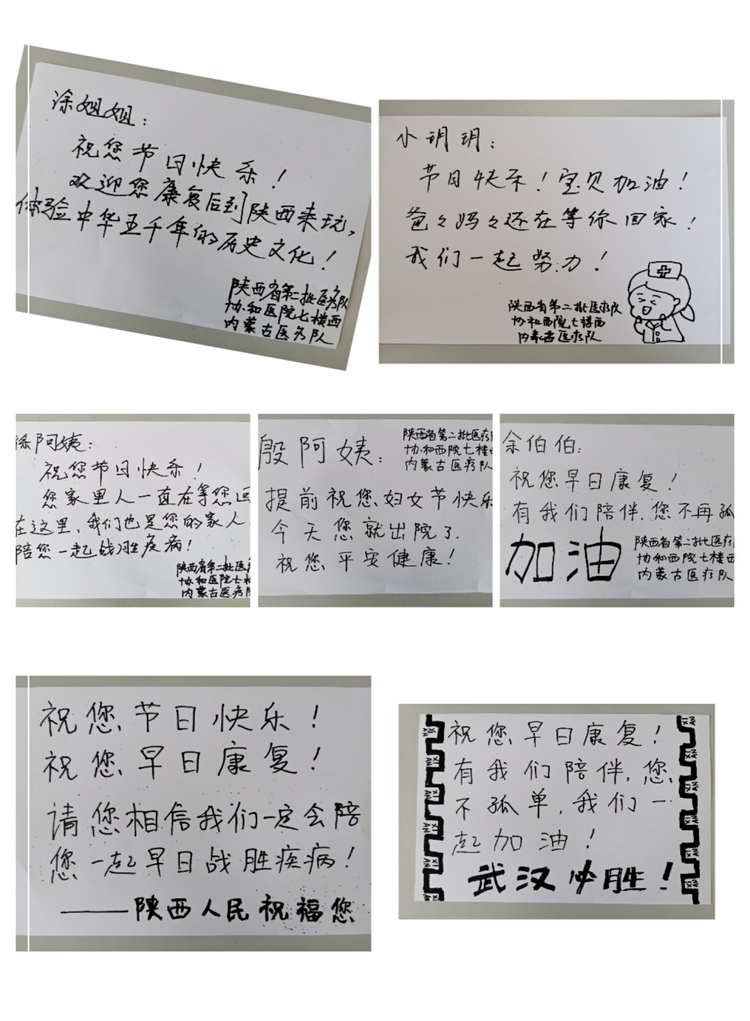 涂姐姐：
祝您节日快乐！
欢迎您康复后到陕西来玩，
体验中华五千年的历史文化！
陕西省第二批医疗队
协和医院七楼西
内蒙古医疗队
小玥玥：
节日快乐！宝贝加油！
爸々妈々还在等你回家！
我们一起努力！
陕西省第二批医疗队
协和西院七楼西
内蒙古医疗队
徐阿姨：
祝您节日快乐！
您家里人一直在等您回
在这里，我们也是您的家人
陪您一起战胜疫病！
陕西省第二批医
协和医院七楼
内蒙古医疗队
殷阿姨：
陕西省第二批医疗
协和西院七楼
内蒙古医疗队
提前祝您，妇女节快乐
今天您就出院了，
祝您平安健康！
余伯伯：
祝您早日康复！
有我们陪伴，您不再孤
加油
陕西省第二批医疗
协和医院七楼西
内蒙古医疗队
祝您节日快乐！
祝您早日康复！
请您相信我们一定会陪
您一起早日战胜疾病！
——陕西人民祝福您
祝您早日康复！
有我们陪伴，您
不孤单，我们一
起加油！
武汉必胜！